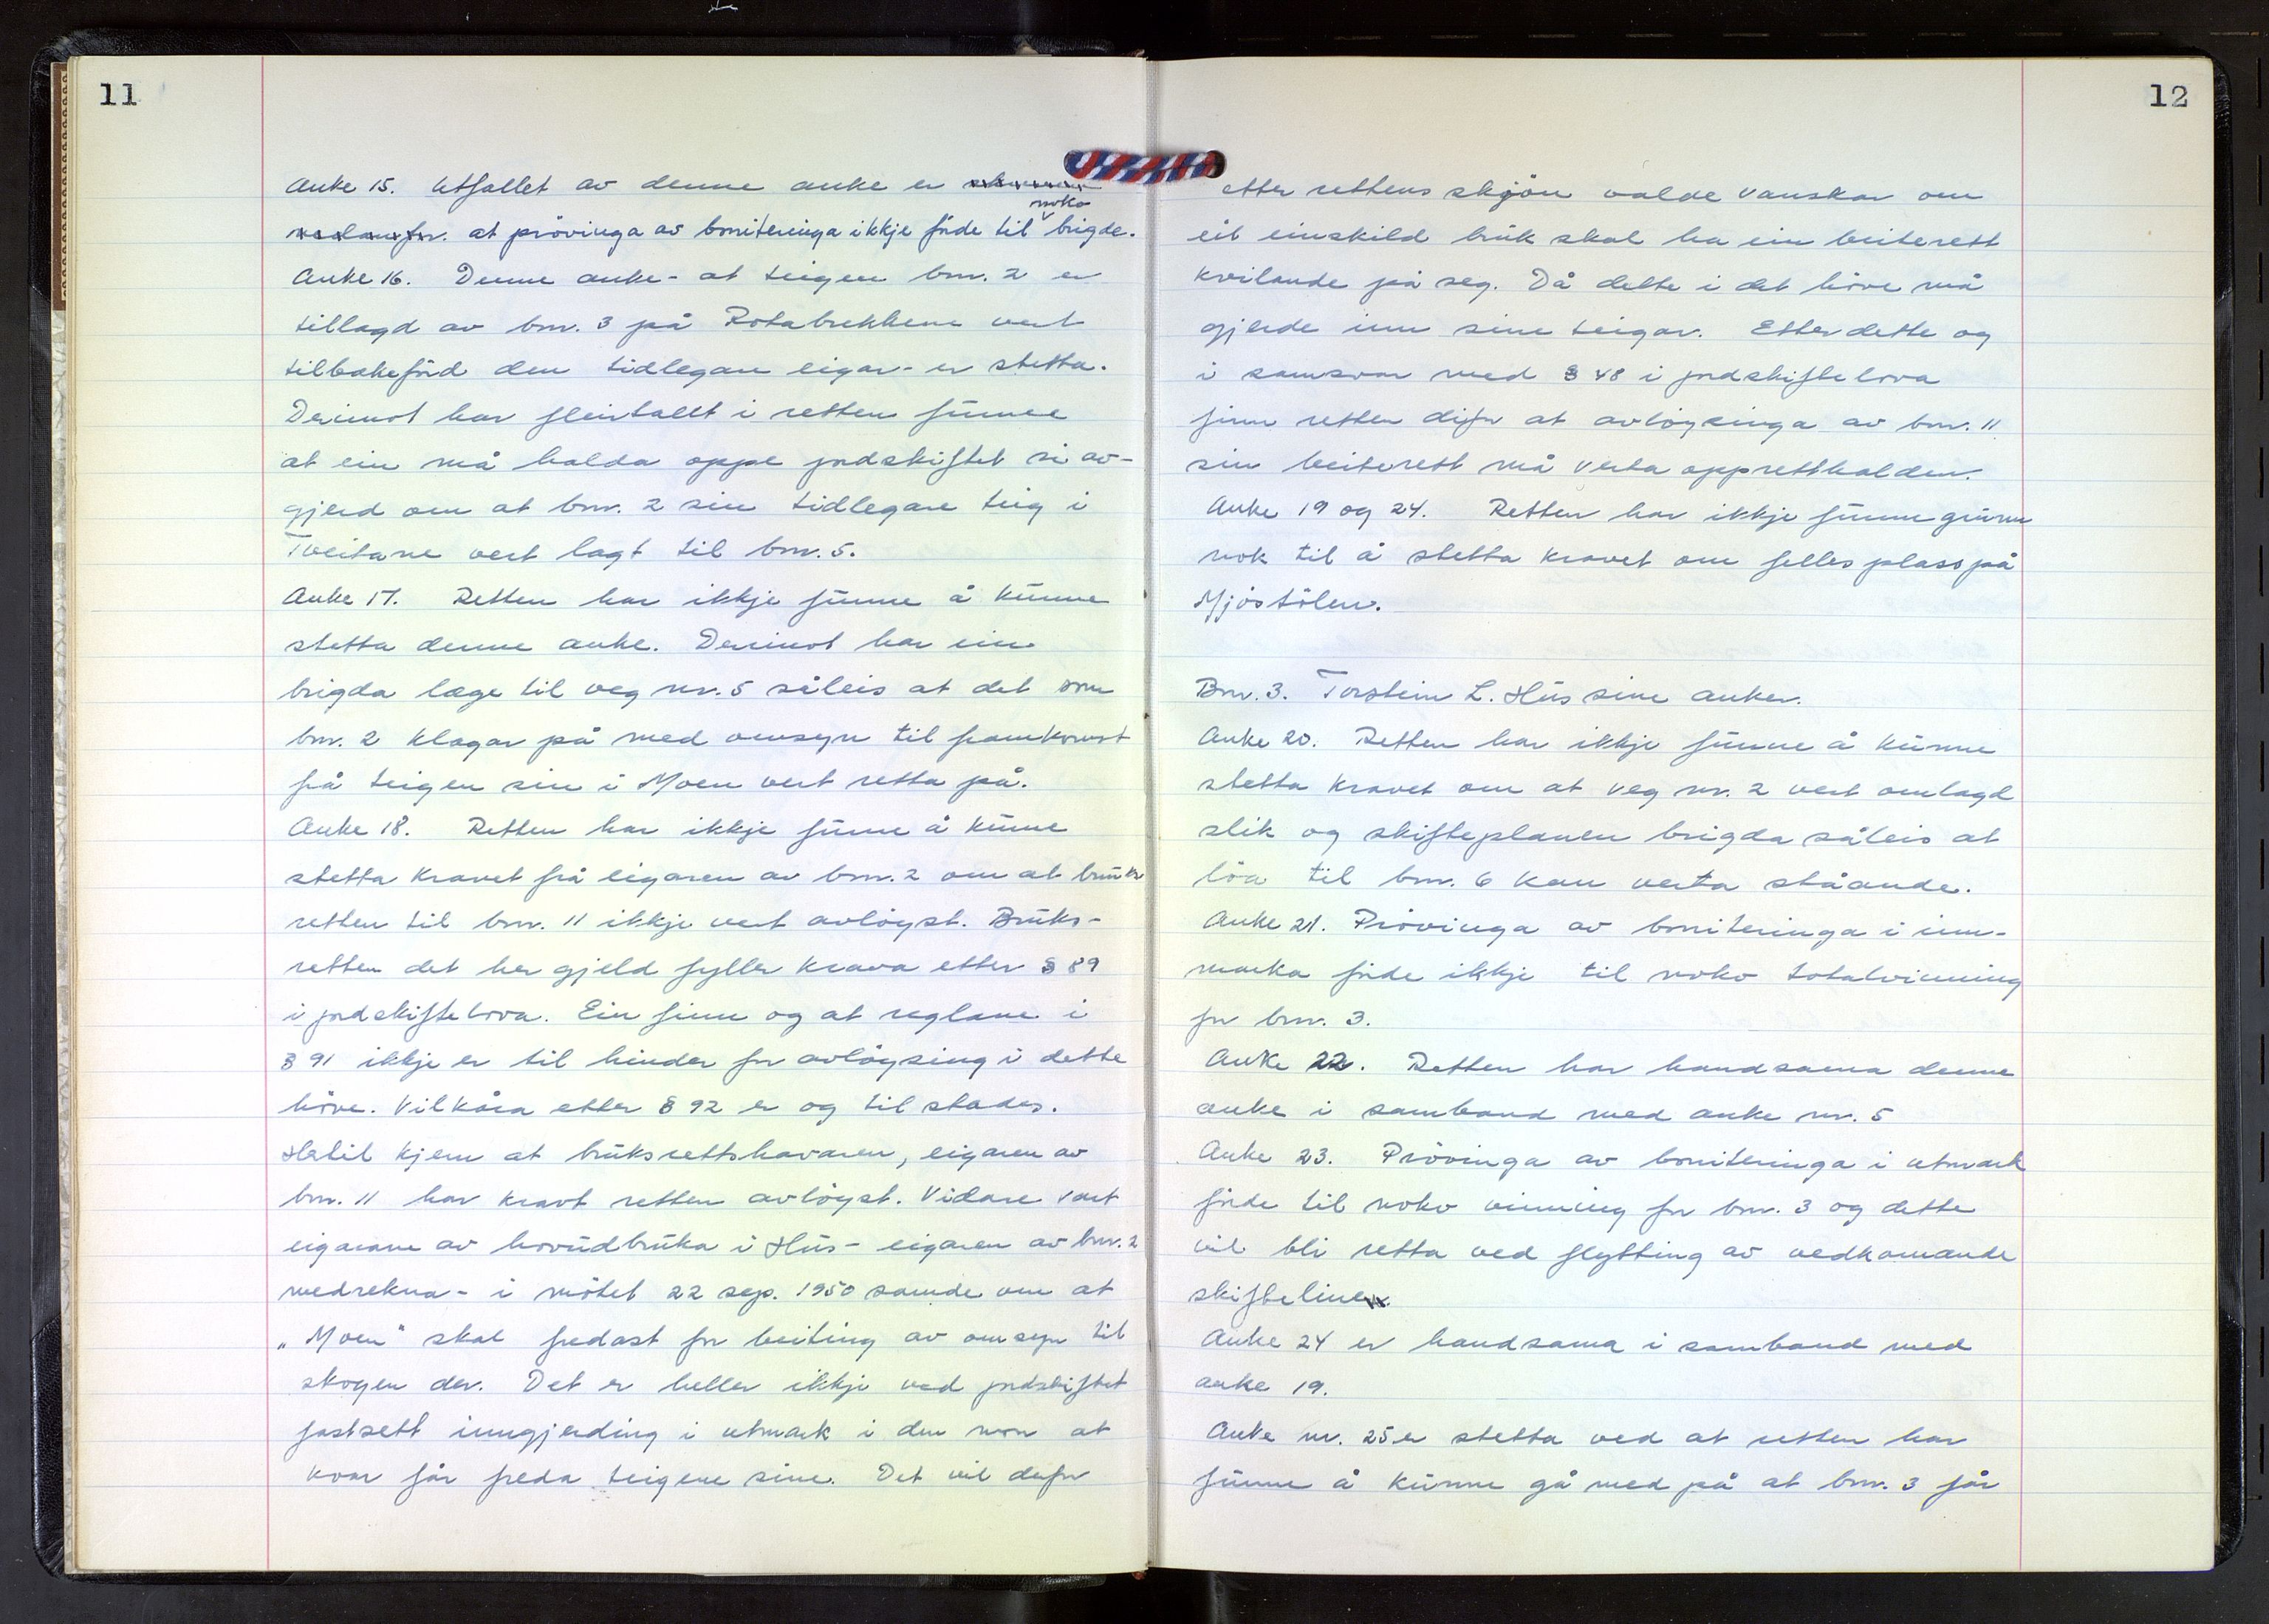 11
Anke 15. Utfallet av denne anke er
at prövinga av boniteringa ikkje förde til noko brigde.
Anke 16. Denne anke - at teigen bnr. 2 er
tillagd av bnr. 3 på Rotabrekkene vert
tilbakeförd den tidlegare eigar - er stetta.
Derimot har fleirtallt i retten funne
at ein må halda oppe jordskiftet si av-
gjerd om at bnr. 2 sin tidlegare teig i
Tveitane vert lagt til bnr. 5.
Anke 17. Retten har ikkje funne å kunne
stetta denne anke. Derimot har ein
brigda læge til veg nr. 5 såleis at det som
bnr. 2 klagar på med omsyn til framkomst
på teigen sin i Moen vert retta på.
Anke 18. Retten har ikkje funne å kunne
stetta kravet frå eigaren av bnr. 2 om at bruks
retten til bnr. 11 ikkje vert avlöyst. Bruks-
retten det her gjeld fyller krava etter § 89
i jordskiftelova. Ein finn og at reglane i
§ 91 ikkje er til hinder for avlöysing i dette
höve. Vilkåra etter § 92 er og til stades.
Hertil kjem at bruksrettshavaren, eigaren av
bnr. 11 har kravt retten avlöyst. Vidare vart
eigarane av hovudbruka i Hus - eigaren av bnr. 2
medrekna - i mötet 22 sep. 1950 samde om at
„Moen" skal fredast for beiting av omsyn til
skogen der. Det er heller ikkje ved jordskiftet
fastsett inngjerding i utmark i den mon at
kvar får freda teigene sine. Det vil derfor
12
etter rettens skjön valde vanskar om
eit einskild bruk skal ha ein beiterett
kvilande på seg. Då dette i det höve må
gjerde inn sine teigar. Etter dette og
i samsvar med § 48 i jordskiftelova
finn retten difor at avlöysinga av bnr. 11
sin beiterett må verta oppretthalden.
Anke 19 og 24. Retten har ikkje funne grunn
nok til å stetta kravet om felles plass på
Mjöstölen.
Bnr. 3. Torstein L. Hus sine anker.
Anke 20. Retten har ikkje funne å kunne
stetta kravet om at veg nr. 2 vert omlagd
slik og skifteplanen brigda såleis at
löa til bnr. 6 kan verta ståande.
Anke 21. Prövinga av boniteringa i inn-
marka förde ikkje til noko totalvinning
for bnr. 3.
Anke 22. Retten har handsama denne
anke i samband med anke nr. 5
Anke 23. Prövinga av boniteringa i utmark
förde til noko vinning for bnr. 3 og dette
vil bli retta ved flytting av vedkomande
skifteline.
Anke 24 er handsama i samband med
anke 19.
Anke nr. 25 er stetta ved at retten har
funne å kunne gå med på at bnr. 3 får